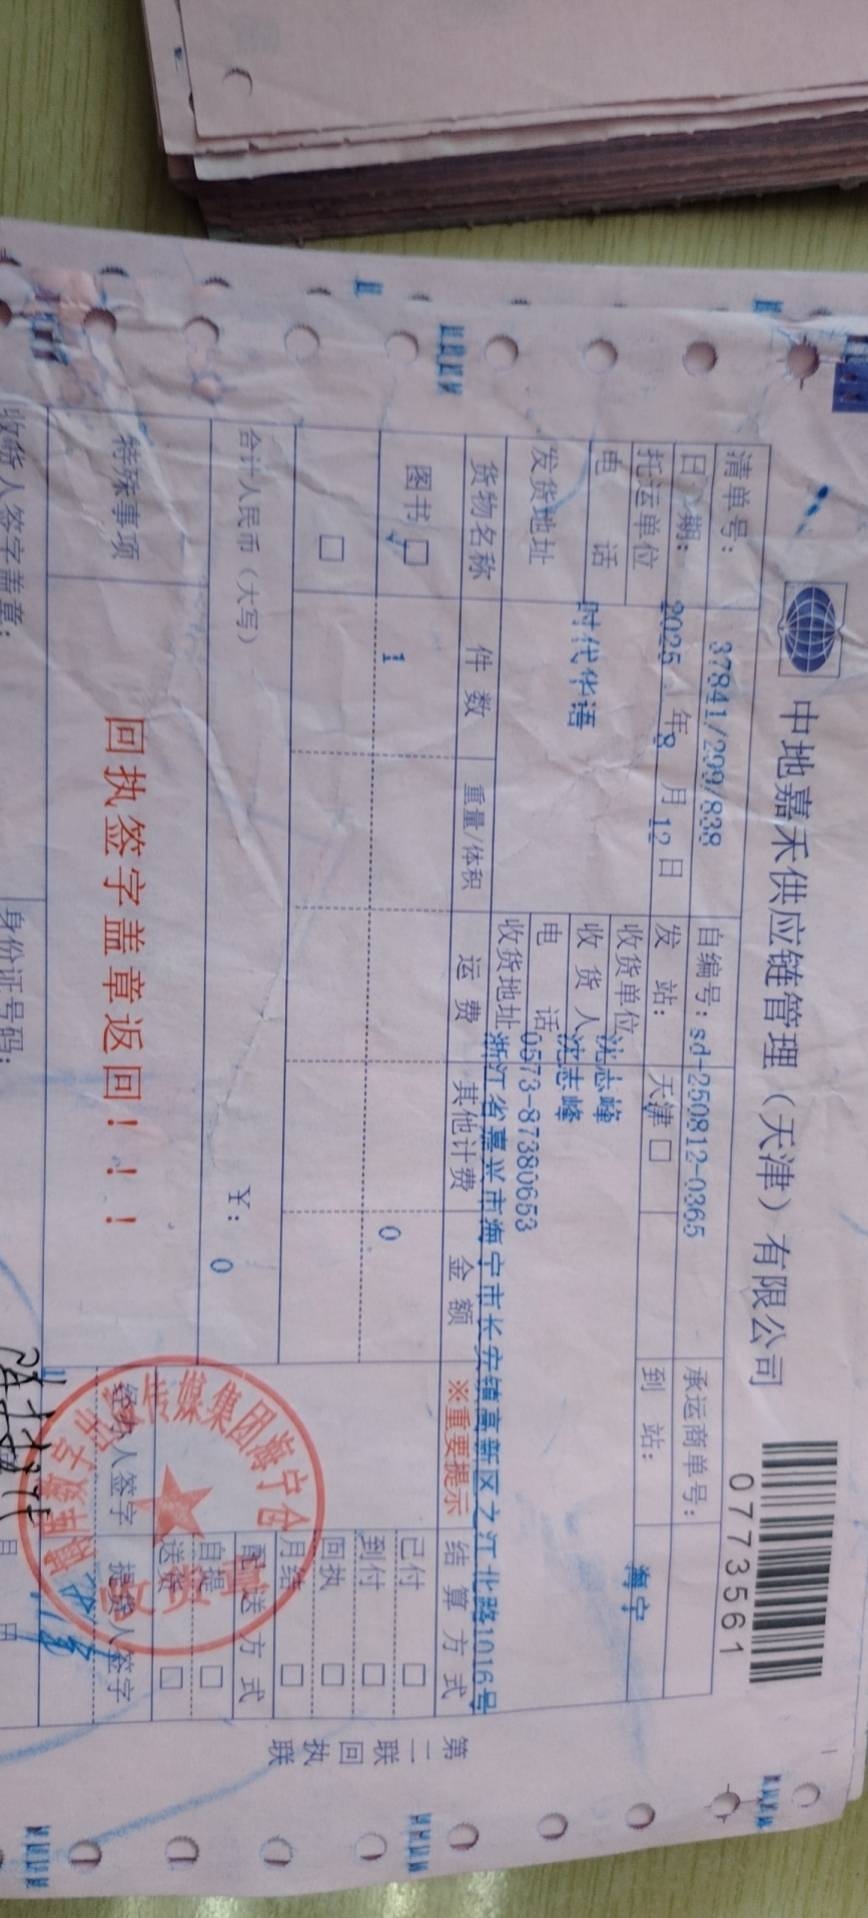 中地嘉禾供应链管理（天津）有限公司
0773561
清单号： 37841/299/838 自编号：sd-250812-0365 承运商单号：
日 期： 2025 年 8 月 12 日 发 站： 天津 □ 到 站： 海宁
托运单位 收货单位 沈志峰
电 话 时代华语 收 货 人 沈志峰
发货地址 电 话 0573-87380653
收货地址 浙江省嘉兴市海宁市长安镇高新区之江北路1016号
货物名称 件 数 重量/体积 运 费 其他计费 金 额 ※重要提示 结 算 方 式
图书 □ 1 0 已付 □
□ 到付 □
回执 □
月结 □
合计人民币（大写） ￥： 0 配 送 方 式
自提 □
送货 □
特殊事项 回执签字盖章返回！！！ 经办人签字 提货人签字
收货人签字盖章： 身份证号码： 月 日
第二联回执联
传媒集团海宁仓
收货章